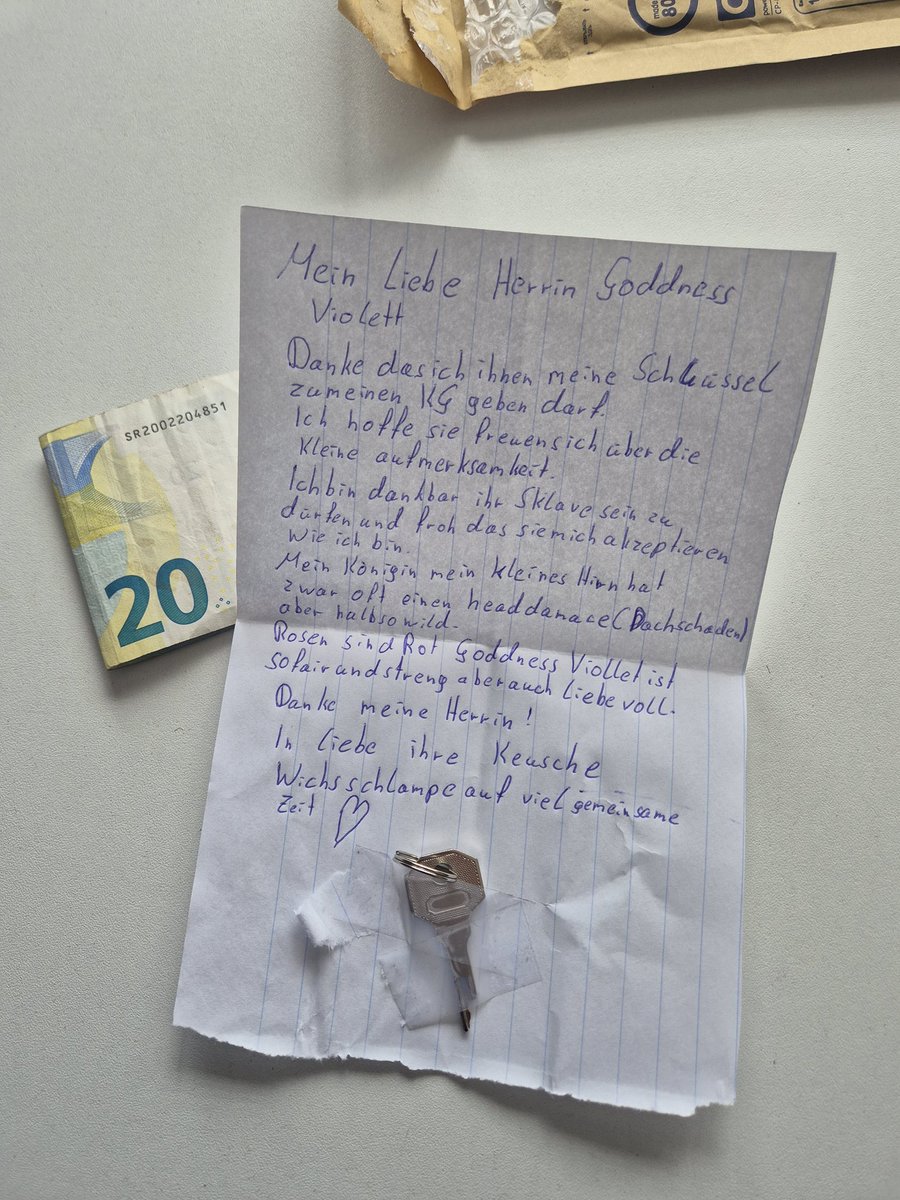 made
80
CP-
SR2002204851
20
Mein Liebe Herrin Goddness
Violett
Danke das ich ihnen meine Schlüssel
zu meinen KG geben darf.
Ich hoffe sie freuen sich über die
Kleine aufmerksamkeit.
Ich bin dankbar ihr Sklave sein zu
dürfen und froh das sie mich akzeptieren
Wie ich bin.
Mein Königin mein kleines Hirn hat
zwar oft einen headdamace (Dachschaden)
aber halbsowild.
Rosen sind Rot Goddness Viollet ist
so fair und streng aber auch liebevoll.
Danke meine Herrin!
In liebe ihre Keusche
Wichsschlampe auf viel gemeinsame
Zeit